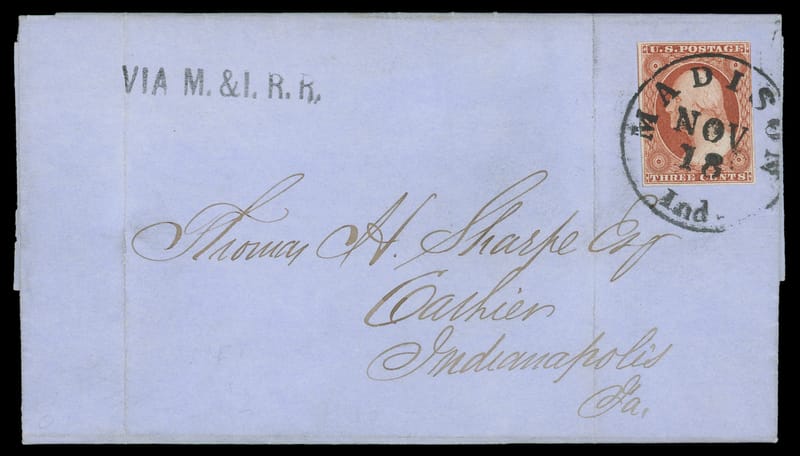 VIA M. & I. R. R.
U.S. POSTAGE
THREE CENTS
MADISON
NOV
18
Ind
Thomas H. Sharpe Esq
Cashier
Indianapolis
Ia.